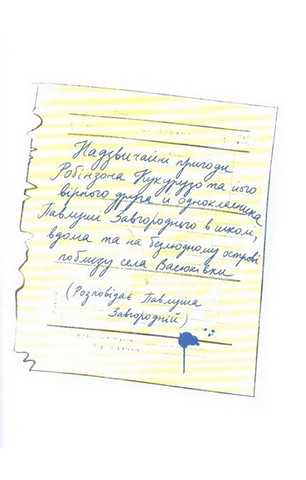 Надзвичайні пригоди
Робінзона Кукурузо та його
вірного друга і однокласника
Павлуші Завгородного в школі,
вдома та на безлюдному острові
поблизу села Васюківки
(Розповідає Павлуша
Завгородній)